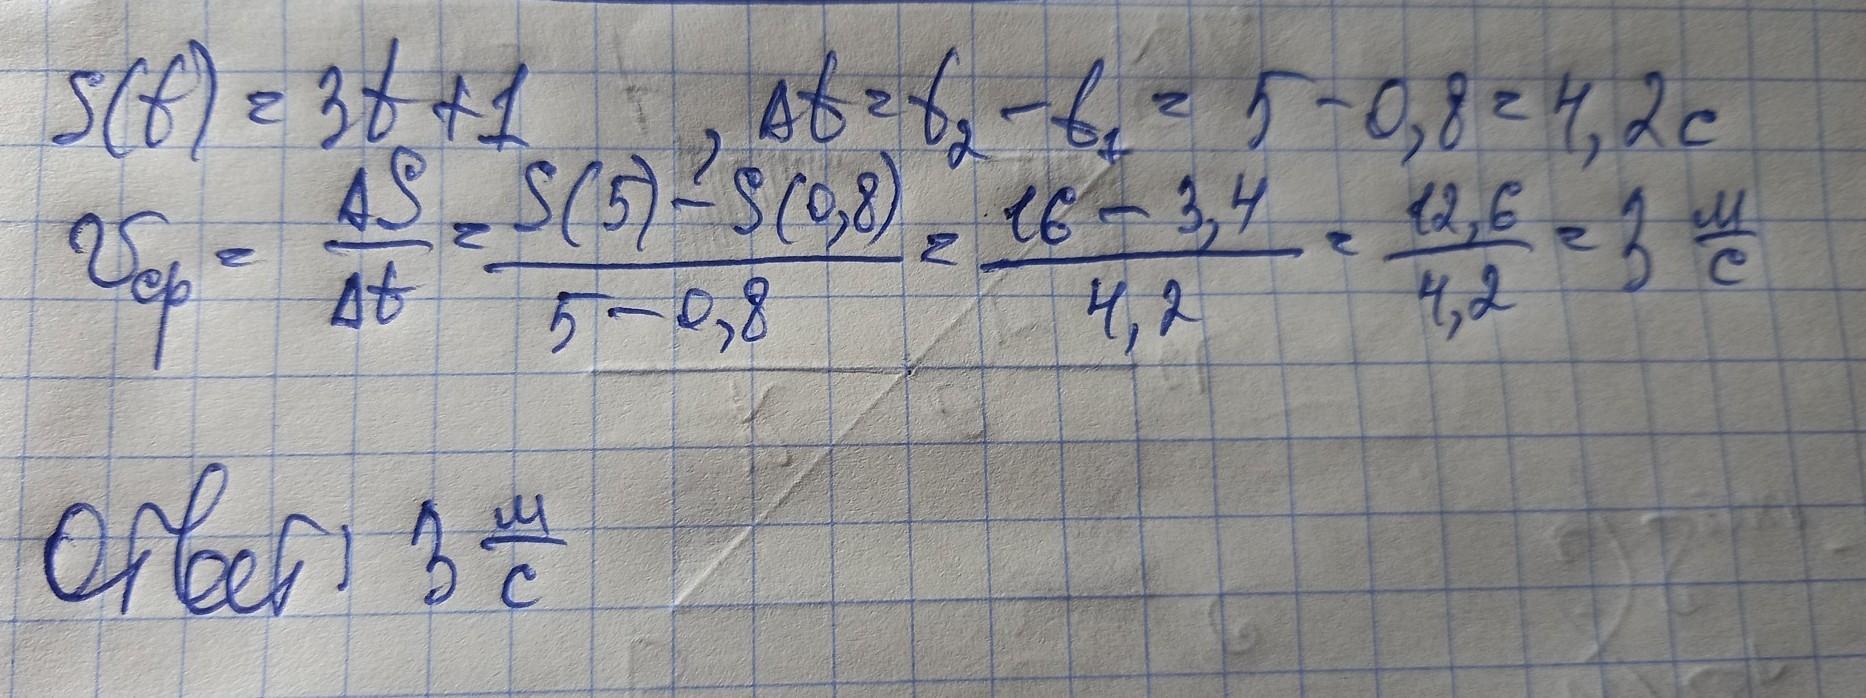 S(t) = 3t + 1 , Δt = t₂ - t₁ = 5 - 0,8 = 4,2 с
Vср = ΔS/Δt = (S(5) - S(0,8))/(5 - 0,8) = (16 - 3,4)/4,2 = 12,6/4,2 = 3 м/с
Ответ: 3 м/с